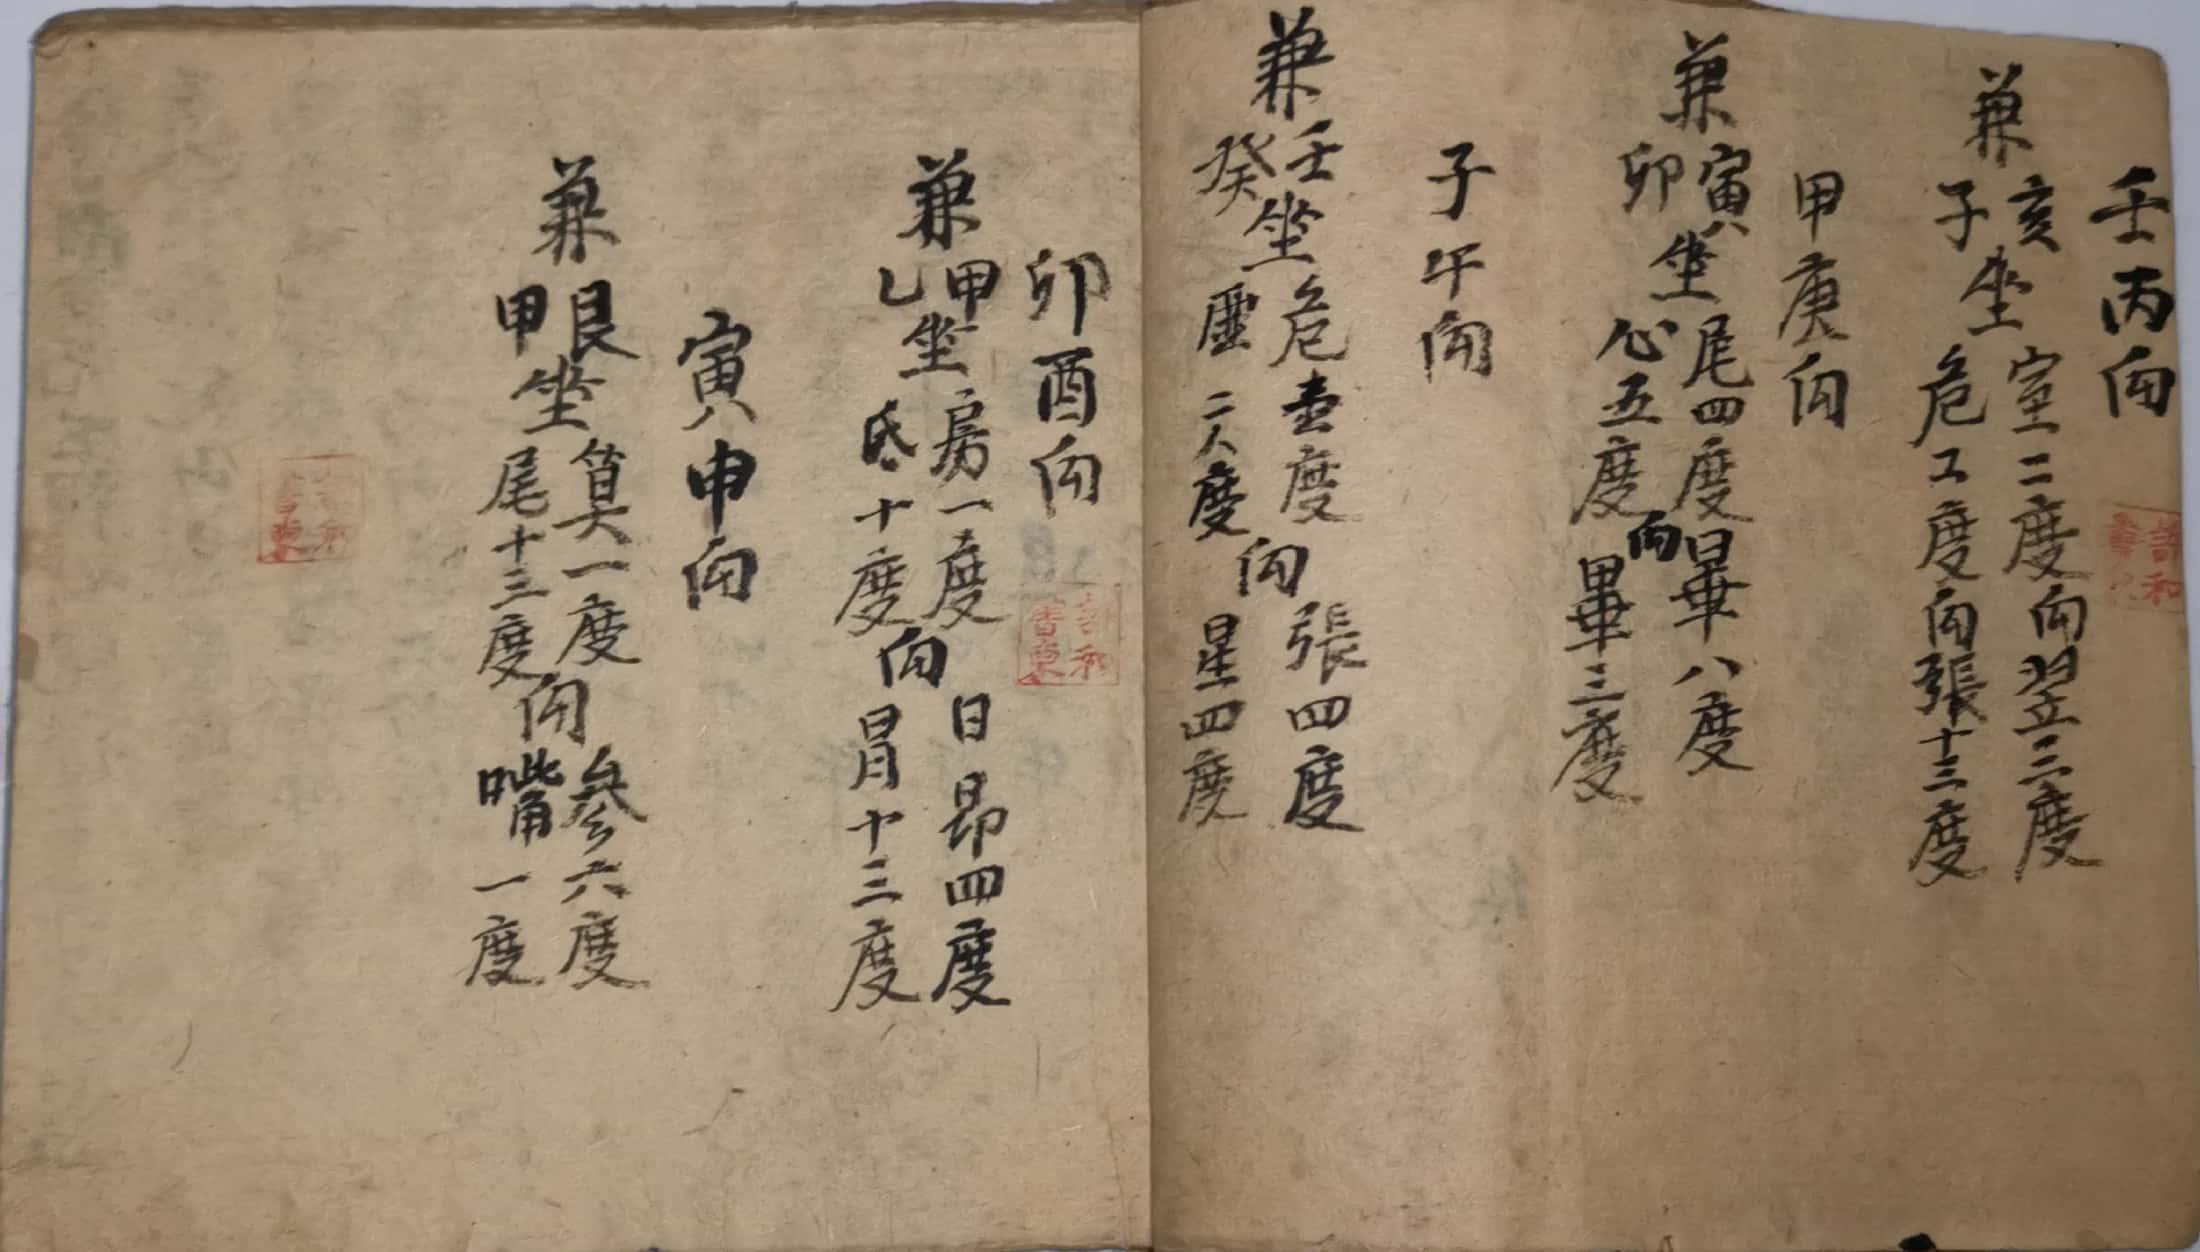 壬丙向
兼
亥坐室二度向翌三度
子危工度向張十三度
甲庚向
兼
寅坐尾四度向畢八度
卯心五度畢三度
子午向
兼
壬坐危壹度向張四度
癸二度星四度
卯酉向
兼
甲坐房一度向日昴四度
乚氐十度胃十三度
寅申向
兼
艮坐箕一度向參六度
甲尾十三度嘴一度
許和
書東